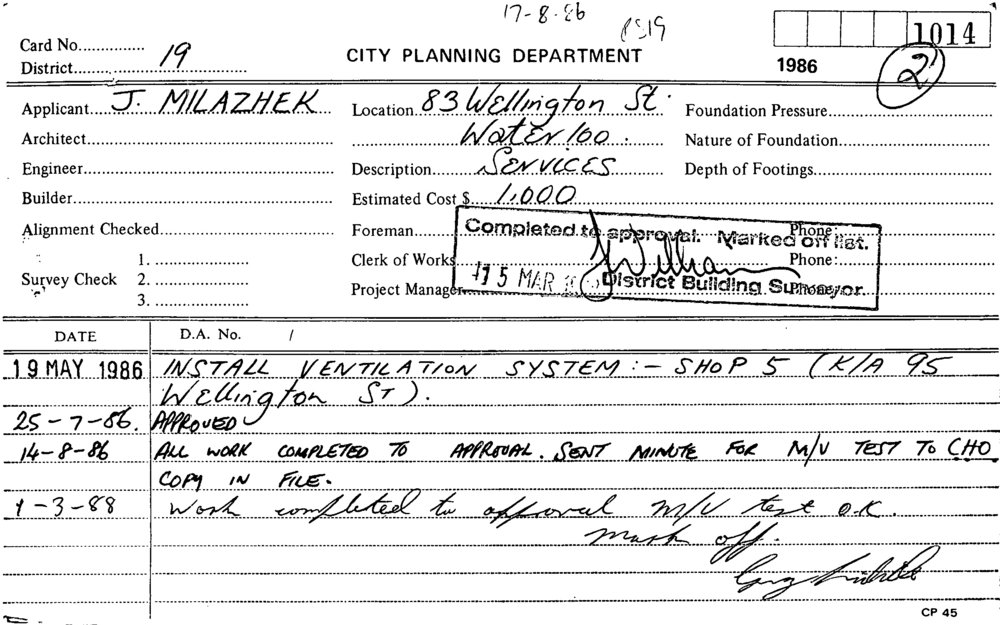 17-8-86
Card No..............
District.................. 19
CITY PLANNING DEPARTMENT
1014
1986
2
Applicant.... J. MILAZHEK
Location 83 Wellington St.
Foundation Pressure
Architect
Waterloo.
Nature of Foundation
Engineer
Description SERVICES
Depth of Footings
Builder
Estimated Cost $ 1,000
Alignment Checked
Foreman
Phone
Completed to approval. Marked off list.
Survey Check 1.
2.
3.
Clerk of Works
Phone:
15 MAR
District Building Surveyor.
Project Manager
Phone:
DATE D.A. No. /
19 MAY 1986 INSTALL VENTILATION SYSTEM:- SHOP 5 (K/A 95
Wellington ST).
25-7-86. APPROVED
14-8-86 ALL WORK COMPLETED TO APPROVAL. SENT MINUTE FOR M/V TEST TO CHO
COPY IN FILE.
1-3-88 Work completed to approval M/V test O.K.
Mark off.
CP 45